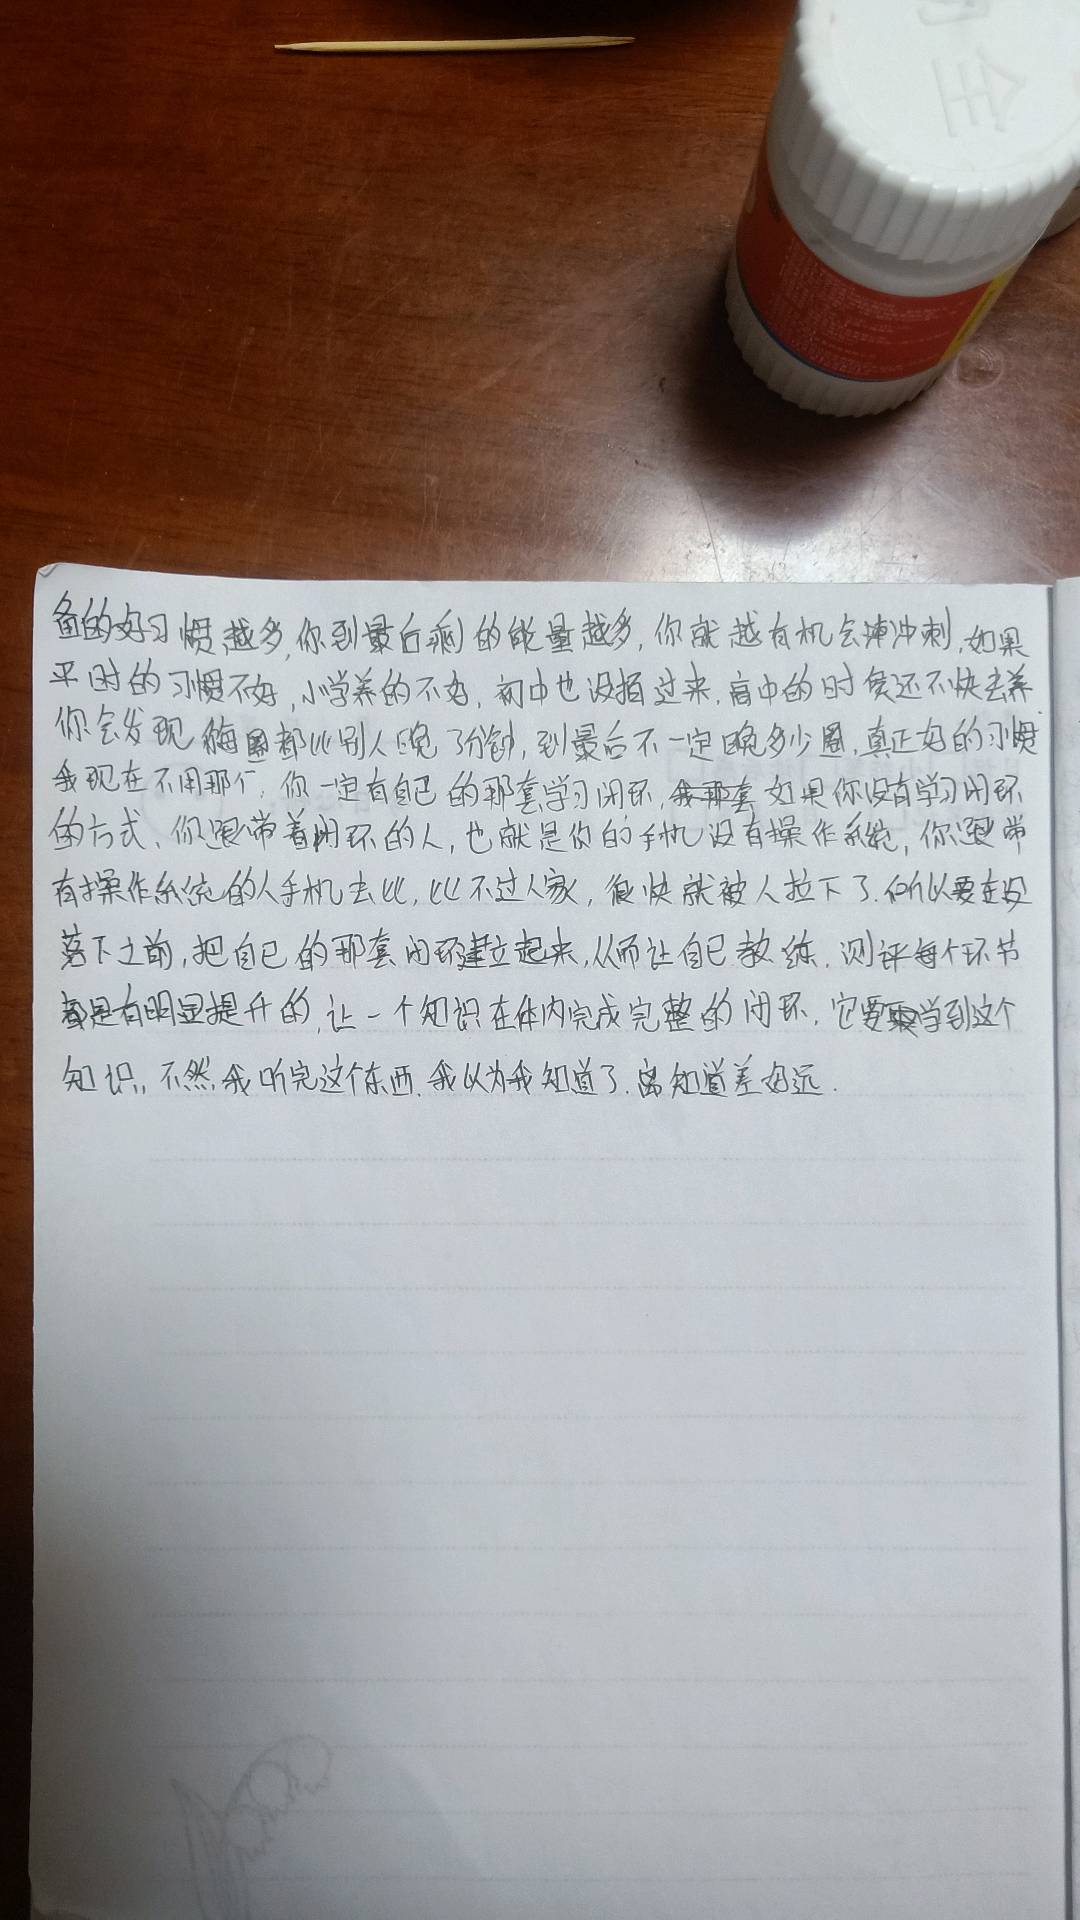 全
的好习惯越多,你到最后剩的能量越多,你就越有机会冲刺,如果
平时的习惯不好,小学养的不好,初中也没掐过来,高中的时候还不快去养
你会发现每圈都比别人晚了分钟,到最后不一定晚多少圈,真正好的习惯
我现在不用那个,你一定有自己的那套学习闭环,如果你没有学习闭环
的方式、你跟带着闭环的人,也就是你的手机没有操作系统,你跟带
有操作系统的人手机去比,比不过人家,很快就被人拉下了.所以要在没
落下之前,把自己的那套闭环建立起来,从而让自己教练.测评每个环节
都是有明显提升的,让一个知识在体内完成完整的闭环,它要学到这个
知识,不然,我听完这个东西.我以为我知道了.离知道差好远.